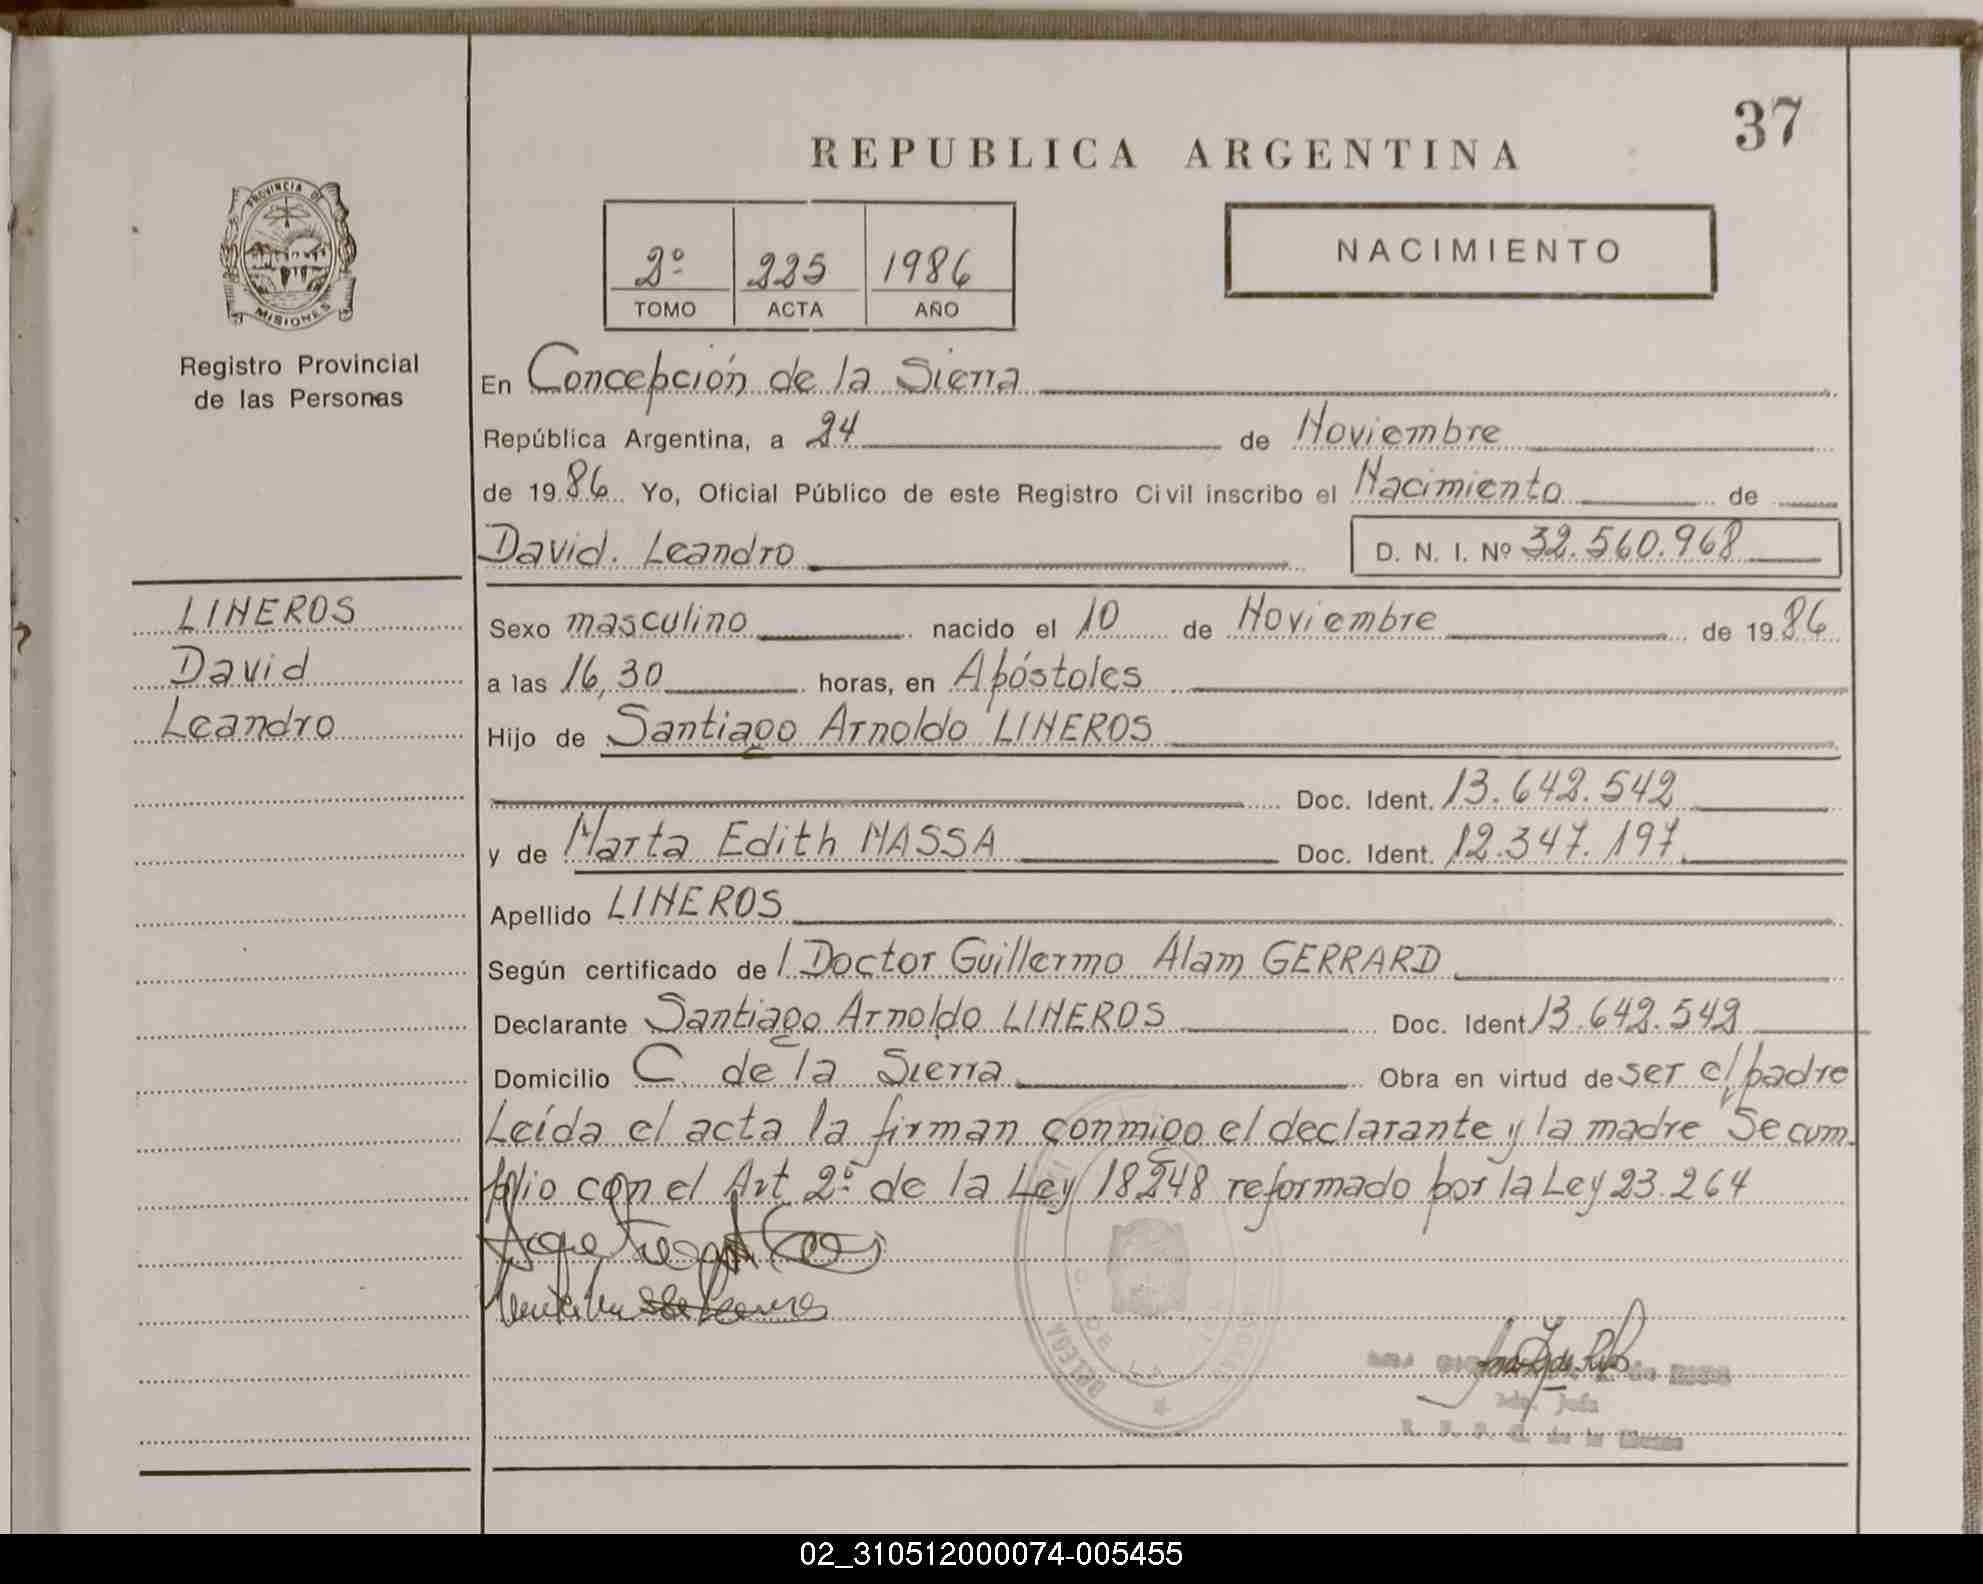 37
REPUBLICA ARGENTINA
PROVINCIA DE
MISIONES
2º 225 1986
TOMO ACTA AÑO
NACIMIENTO
Registro Provincial
de las Personas
En Concepción de la Sierra
República Argentina, a 24 de Noviembre
de 1986 Yo, Oficial Público de este Registro Civil inscribo el Nacimiento de
David Leandro D. N. I. Nº 32.560.968
LINEROS
David
Leandro
Sexo masculino nacido el 10 de Noviembre de 1986
a las 16,30 horas, en Apóstoles
Hijo de Santiago Arnoldo LINEROS
Doc. Ident. 13.642.542
y de Marta Edith MASSA Doc. Ident. 12.347.197
Apellido LINEROS
Según certificado del Doctor Guillermo Alam GERRARD
Declarante Santiago Arnoldo LINEROS Doc. Ident 13.642.542
Domicilio C. de la Sierra Obra en virtud de ser el padre
Leída el acta la firman conmigo el declarante y la madre Se cum
plio con el Art 2º de la Ley 18248 reformado por la Ley 23.264
02_310512000074-005455